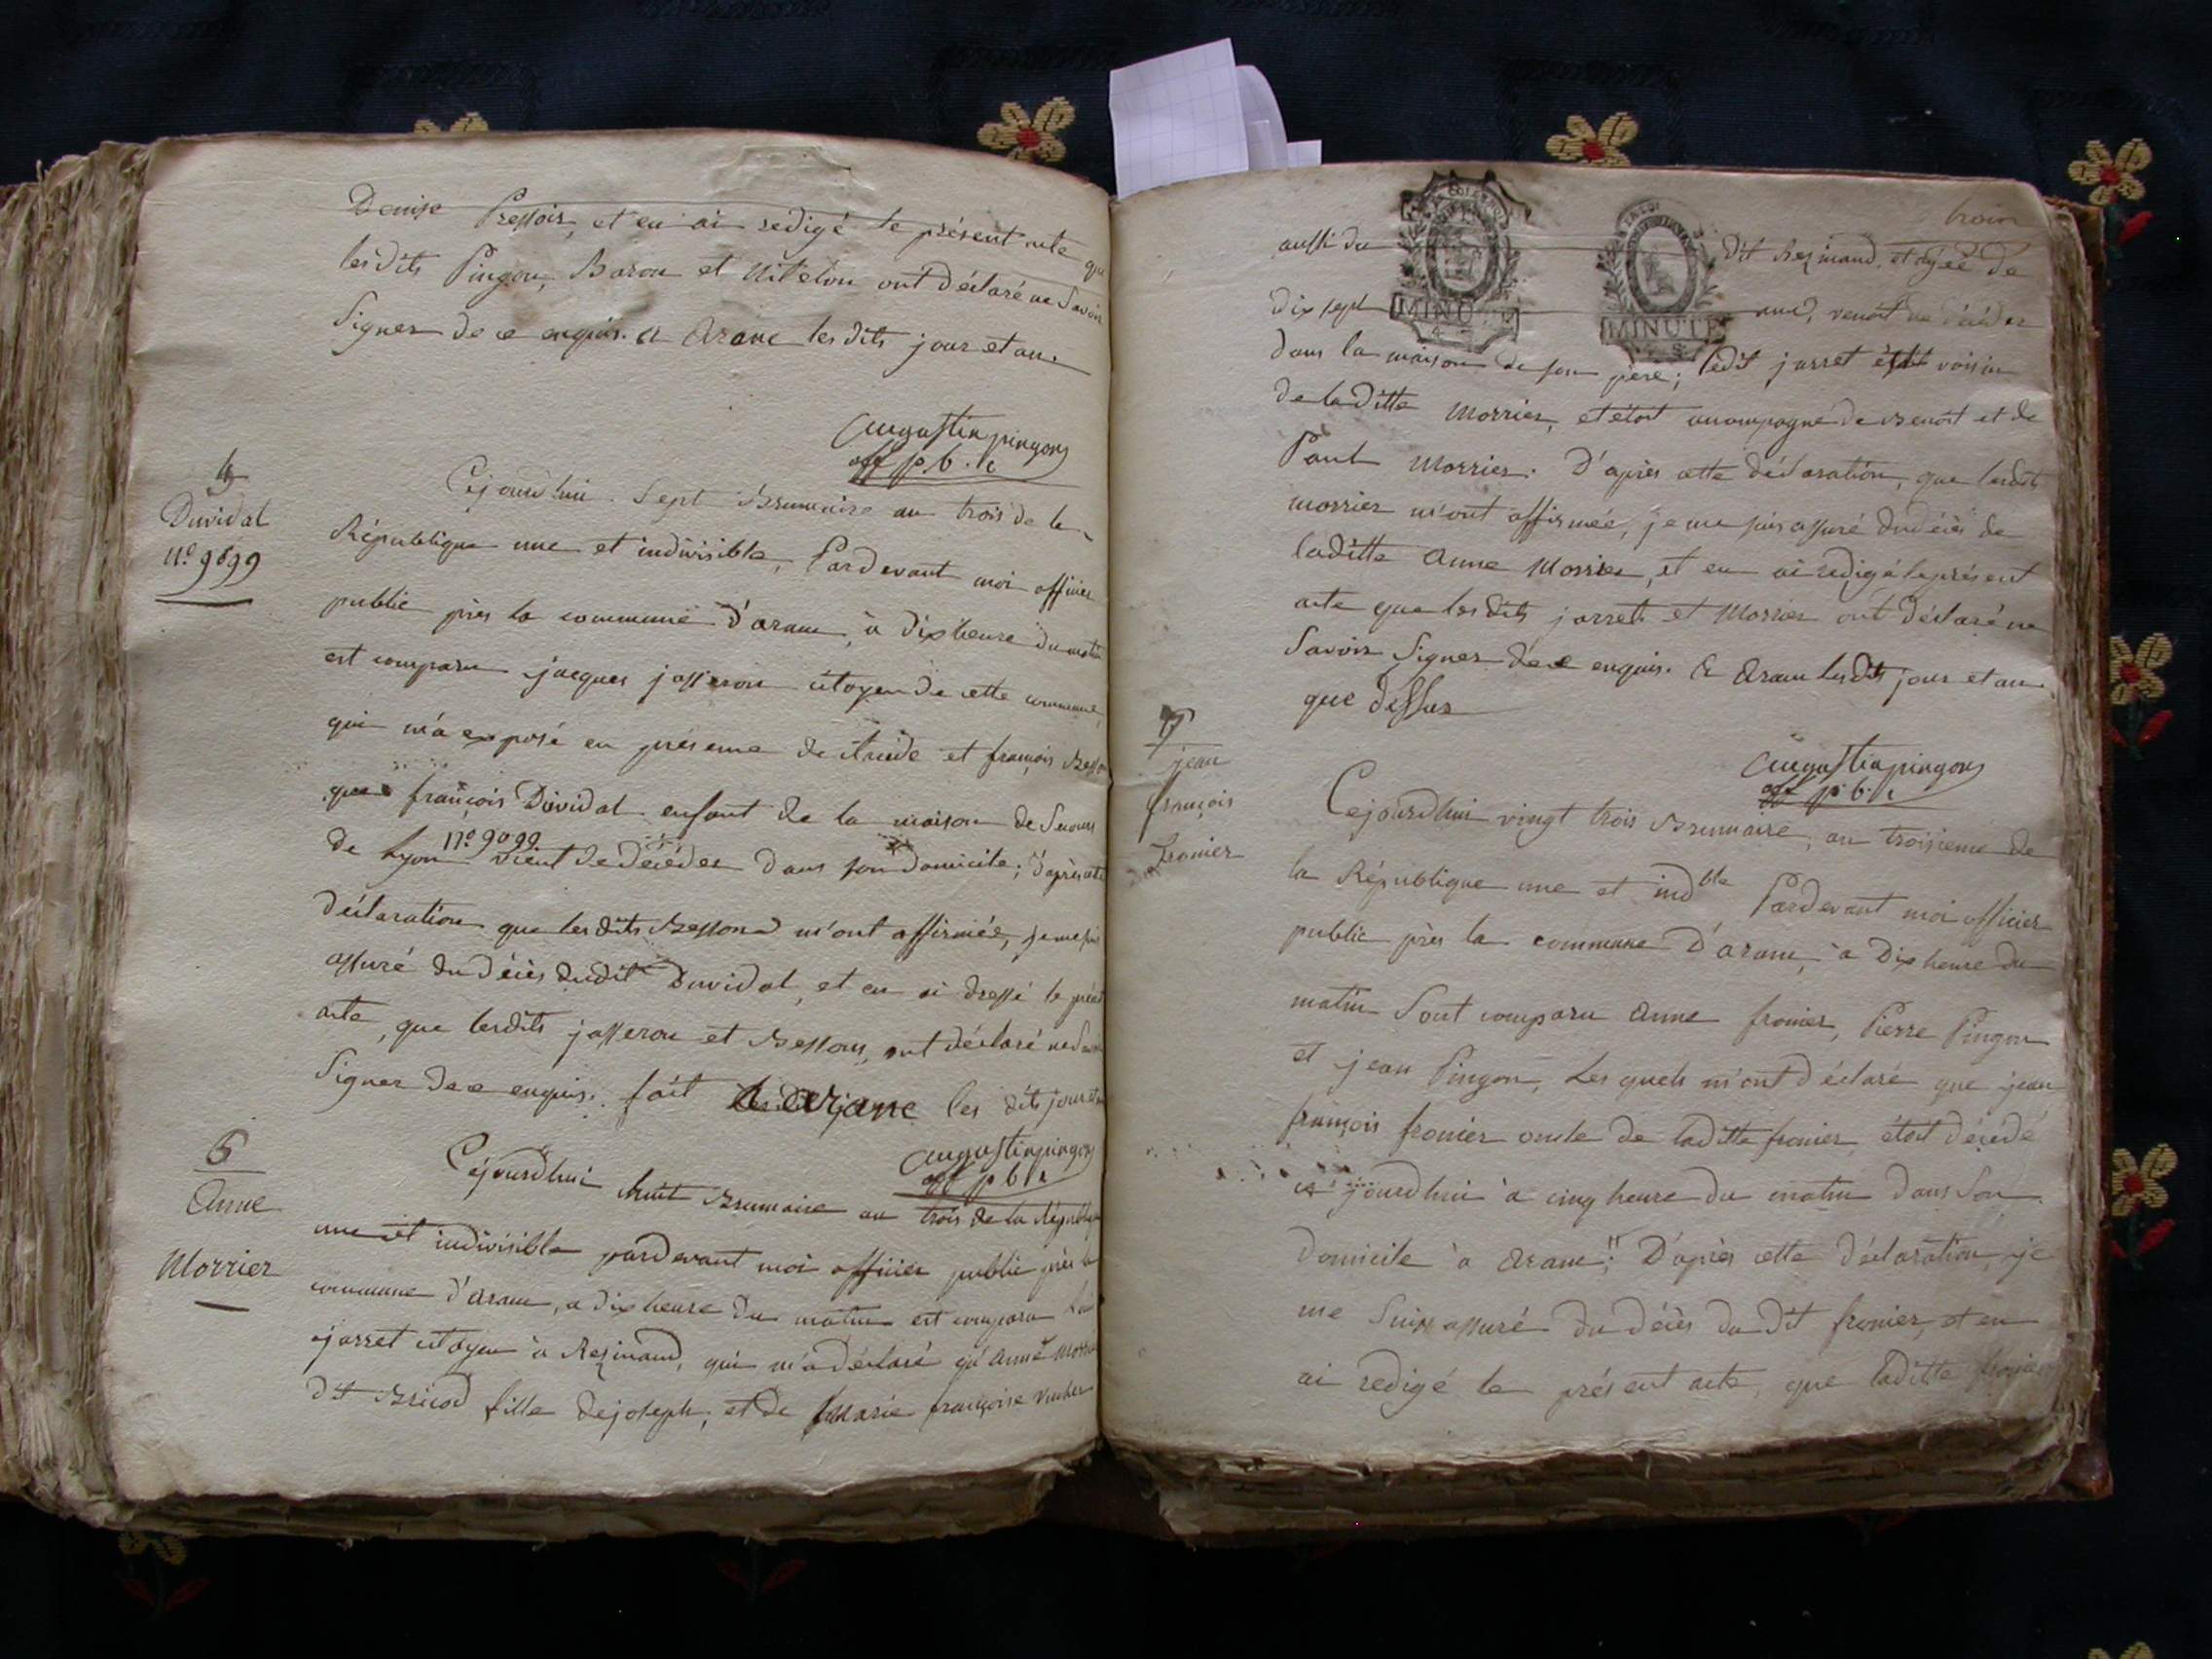 Denise Pressoir, et en ai redigé le présent acte que
lesdits Pingon, Baron et Vitelon ont déclaré ne Savoir
Signer de ce enquis. a Arane les dits jour et an.
augustin pingon
off p. b. c
Duvidal
n.° 9099
Cejourd'hui Sept Brumaire an trois de la
République une et indivisible, Pardevant moi officier
public près la commune d'arane, à dix heure du matin
est comparu jacques jasseron citoyen de cette commune,
qui m'a exposé en présence de et françois
que françois Duvidal enfant de la maison de Secours
de Lyon n.° 9099 vient de décéder dans son domicile; d'après cette
déclaration que lesdits Bessons m'ont affirmée, je me suis
assuré du décès dudit Duvidal, et en ai dressé le présent
acte, que lesdits jasseron et Bessons, ont déclaré ne Savoir
Signer de ce enquis. fait a arane les dits jour et an
augustin pingon
off p b c
6
Anne
Morrier
Cejourd'hui huit Brumaire an trois de la République
une et indivisible pardevant moi officier public près la
commune d'arane, a dix heure du matin est comparu
jarret citoyen à Rezinand, qui m'a déclaré qu'anne Morrier
dit Bricod fille de joseph, et de Marie françoise
trois
aussi du dit Rezinand, et agée de
dix sept ans, venoit de décéder
dans la maison de son père; ledit jarret étoit voisin
de laditte Morrier, et étoit accompagné de Benoit et de
Paul Morrier. D'après cette déclaration, que lesdits
morrier m'ont affirmée, je me suis assuré du décès de
laditte Anne Morrier, et en ai redigé le présent
acte que les dits jarret et Morrier ont déclaré ne
Savoir Signer de ce enquis. A Arane les dits jour et an
que dessus
augustin pingon
off p. b. c
7
jean
françois
fronier
Cejourd'hui vingt trois Brumaire, an troisieme de
la République une et ind.ble Pardevant moi officier
public près la commune D'arane, à dix heure du
matin Sont comparu Anne fronier, Pierre Pingon
et jean Pingon, Lesquels m'ont déclaré que jean
françois fronier oncle de laditte fronier, étoit décédé
cejourd'hui à cinq heure du matin dans Son
Domicile à Arane; D'après cette déclaration, je
me Suis assuré du décès du dit fronier, et en
ai redigé le présent acte, que laditte fronier
MINUTE
MINUTE